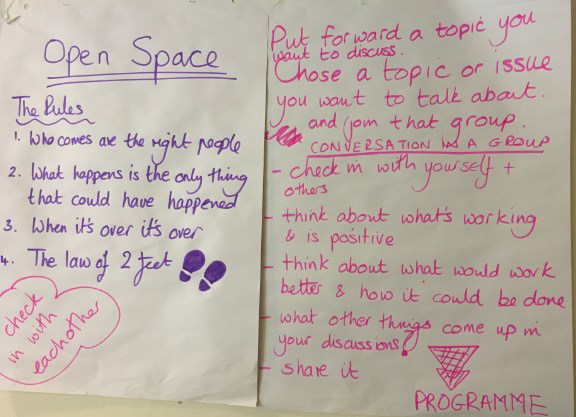 Open Space
The Rules
1. Who comes are the right people
2. What happens is the only thing
that could have happened
3. When it's over it's over
4. The law of 2 feet
check
in with
eachother
Put forward a topic you
want to discuss.
Chose a topic or issue
you want to talk about.
and join that group.
CONVERSATION IN A GROUP
- check in with yourself +
others
- think about what's working
& is positive
- think about what would work
better & how it could be done
- what other things come up in
your discussions?
- share it
PROGRAMME